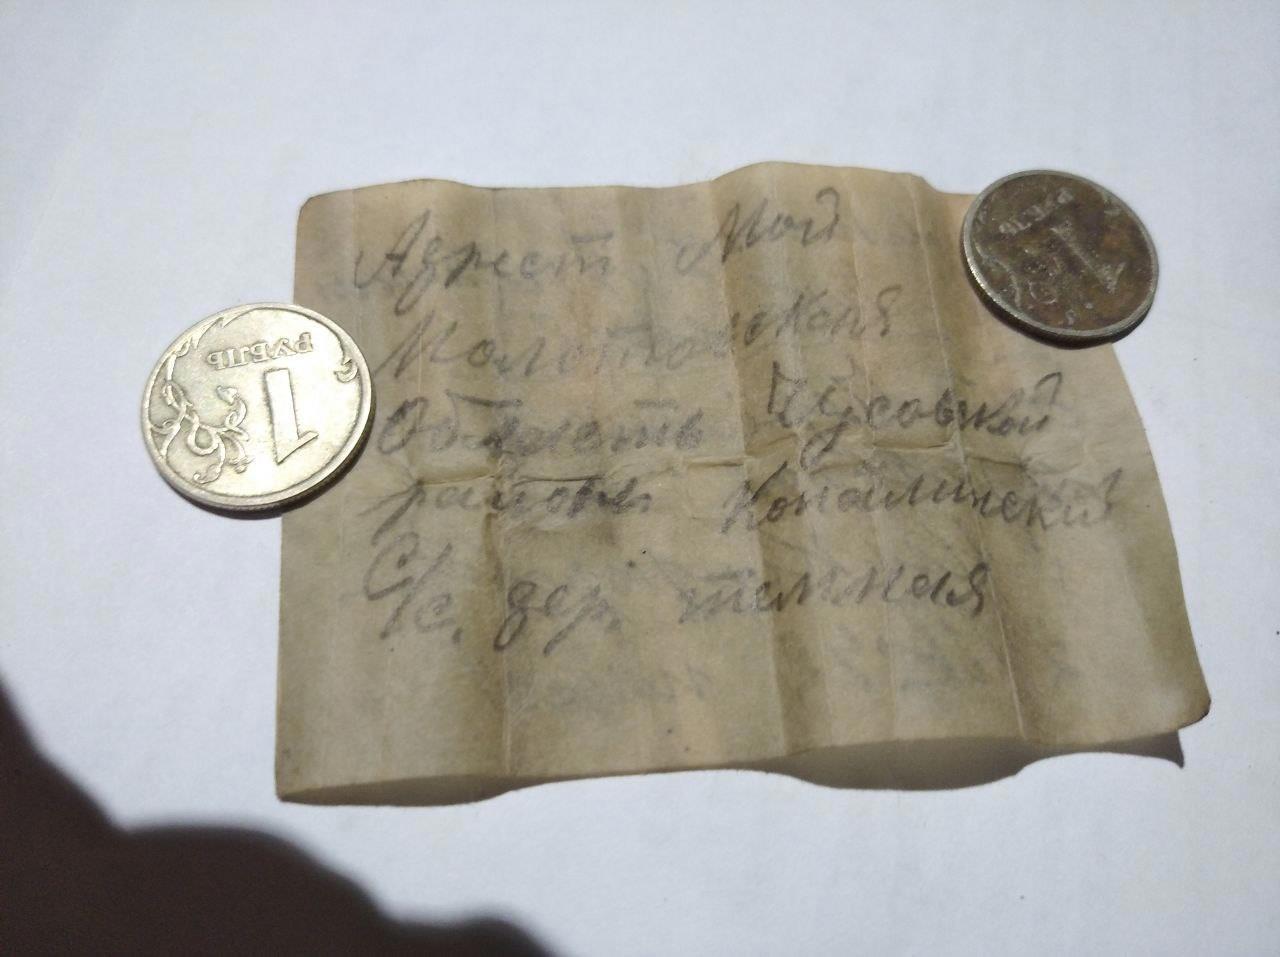 Адрест Мой
Молотовская
Область Чусовской
район Копалинский
С/с. дер. темная
1 РУБЛЬ
1 РУБЛЬ